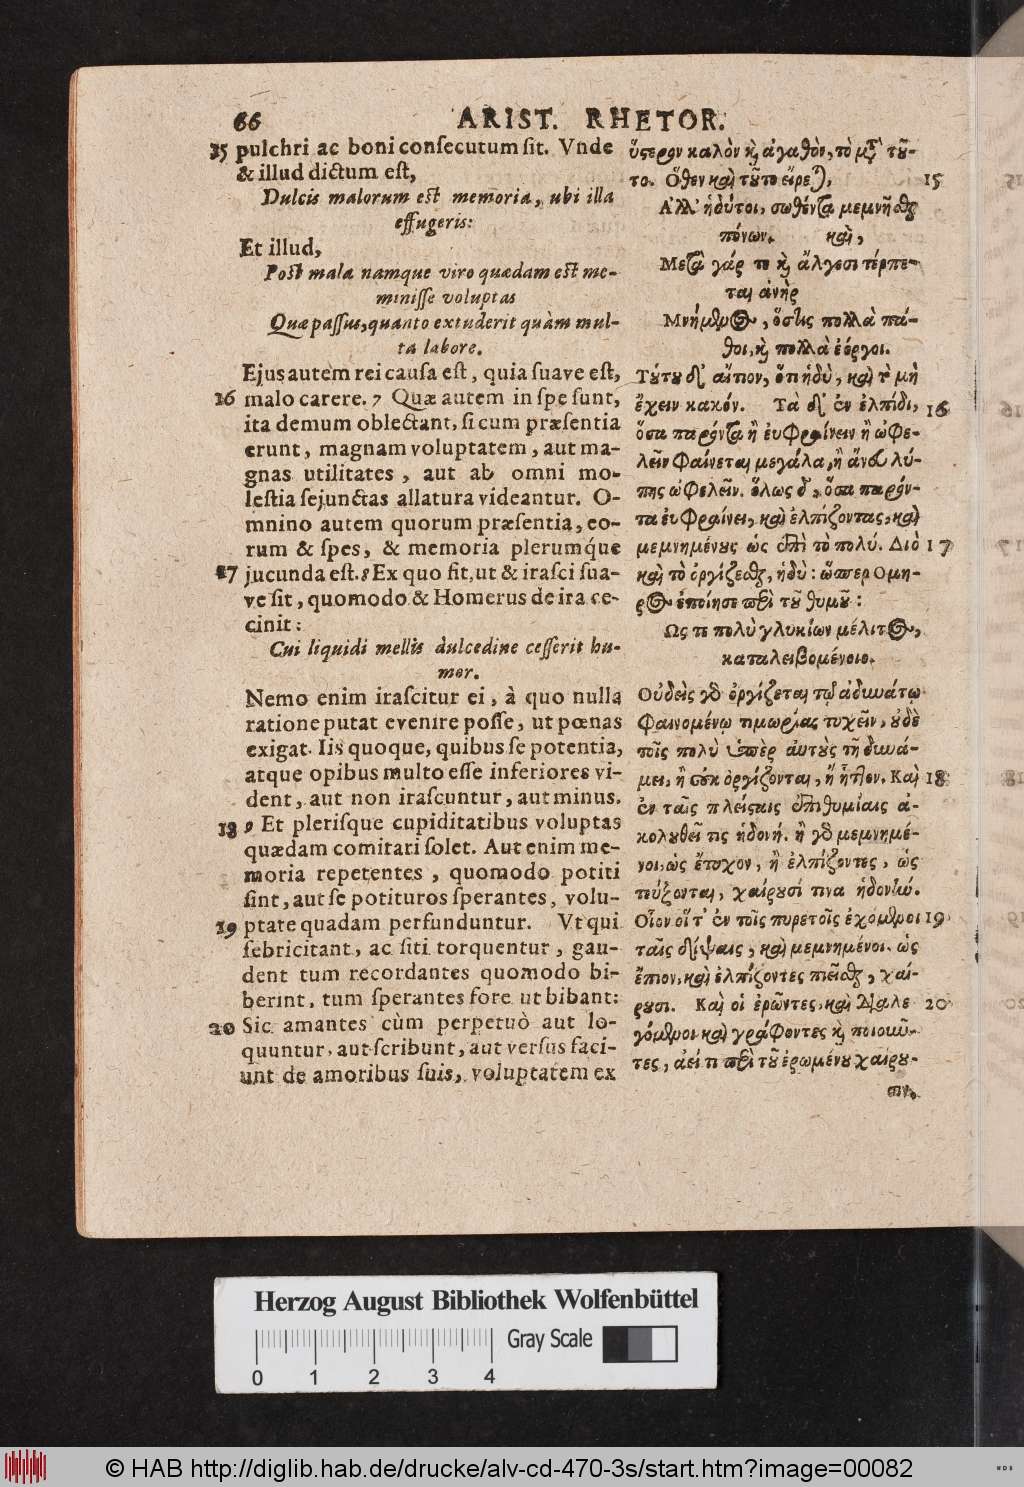 66 ARIST. RHETOR.
15 pulchri ac boni consecutum sit. Vnde
& illud dictum est,
Dulcis malorum est memoria, ubi illa
effugeris:
Et illud,
Post mala namque viro quædam est me-
minisse voluptas
Quæ passus, quanto extuderit quàm mul-
ta labore.
Ejus autem rei causa est, quia suave est,
16 malo carere. 7 Quæ autem in spe sunt,
ita demum oblectant, si cum præsentia
erunt, magnam voluptatem, aut ma-
gnas utilitates, aut ab omni mo-
lestia sejunctas allatura videantur. O-
mnino autem quorum præsentia, eo-
rum & spes, & memoria plerumq́ue
17 jucunda est. 8 Ex quo fit, ut & irasci sua-
ve sit, quomodo & Homerus de ira ce-
cinit:
Cui liquidi mellis dulcedine cesserit hu-
mor.
Nemo enim irascitur ei, à quo nulla
ratione putat evenire posse, ut pœnas
exigat. Iis quoque, quibus se potentia,
atque opibus multo esse inferiores vi-
dent, aut non irascuntur, aut minus.
18 9 Et plerisque cupiditatibus voluptas
quædam comitari solet. Aut enim me-
moria repetentes, quomodo potiti
sint, aut se potituros sperantes, volu-
19 ptate quadam perfunduntur. Vt qui
febricitant, ac siti torquentur, gau-
dent tum recordantes quomodo bi-
berint, tum sperantes fore ut bibant:
20 Sic amantes cùm perpetuò aut lo-
quuntur, aut scribunt, aut versus faci-
unt de amoribus suis, voluptatem ex
ὕστερον καλὸν καὶ ἀγαθὸν, τὸ μετὰ τοῦ-
το. Ὅθεν καὶ τοῦτο εἴρεται, 15
Ἀλλ' ἡδύτοι, σωθέντα μεμνῆσθαι
πόνων. καὶ,
Μετὰ γάρ τε καὶ ἄλγεσι τέρπε-
ται ἀνὴρ
Μνήμενος, ὅστις πολλὰ πά-
θοι, καὶ πολλὰ ἐόργοι.
Τούτου δ' αἴτιον, ὅτι ἡδὺ, καὶ τὸ μὴ
ἔχειν κακόν. Τὰ δ' ἐν ἐλπίδι, 16
ὅσα παρόντα ἢ εὐφραίνειν ἢ ὠφε-
λεῖν φαίνεται μεγάλα, ἢ ἄνευ λύ-
πης ὠφελεῖν. ὅλως δὲ, ὅσα παρόν-
τα εὐφραίνει, καὶ ἐλπίζοντας, καὶ
μεμνημένους ὡς ἐπὶ τὸ πολύ. Διὸ 17
καὶ τὸ ὀργίζεσθαι, ἡδύ: ὥσπερ Ὁμη-
ρος ἐποίησε περὶ τοῦ θυμοῦ:
Ὥς τε πολὺ γλυκίων μέλιτος,
καταλειβομένοιο.
Οὐδεὶς γὰρ ὀργίζεται τῷ ἀδυνάτῳ
φαινομένῳ τιμωρίας τυχεῖν, οὐδὲ
τοῖς πολὺ ὑπὲρ αὑτοὺς τῇ δυνά-
μει, ἢ οὐκ ὀργίζονται, ἢ ἧττον. Καὶ 18
ἐν ταῖς πλείσταις ἐπιθυμίαις ἀ-
κολουθεῖ τις ἡδονή. ἢ γὰρ μεμνημέ-
νοι, ὡς ἔτυχον, ἢ ἐλπίζοντες, ὡς
τεύξονται, χαίρουσί τινα ἡδονήν.
Οἷον οἵ τ' ἐν τοῖς πυρετοῖς ἐχόμενοι 19
ταῖς δίψαις, καὶ μεμνημένοι ὡς
ἔπιον, καὶ ἐλπίζοντες πιεῖσθαι, χαί-
ρουσι. Καὶ οἱ ἐρῶντες, καὶ διαλε 20
γόμενοι καὶ γράφοντες καὶ ποιοῦν-
τες, ἀεί τι περὶ τοῦ ἐρωμένου χαίρου-
σιν.
Herzog August Bibliothek Wolfenbüttel
Gray Scale
0 1 2 3 4
© HAB http://diglib.hab.de/drucke/alv-cd-470-3s/start.htm?image=00082